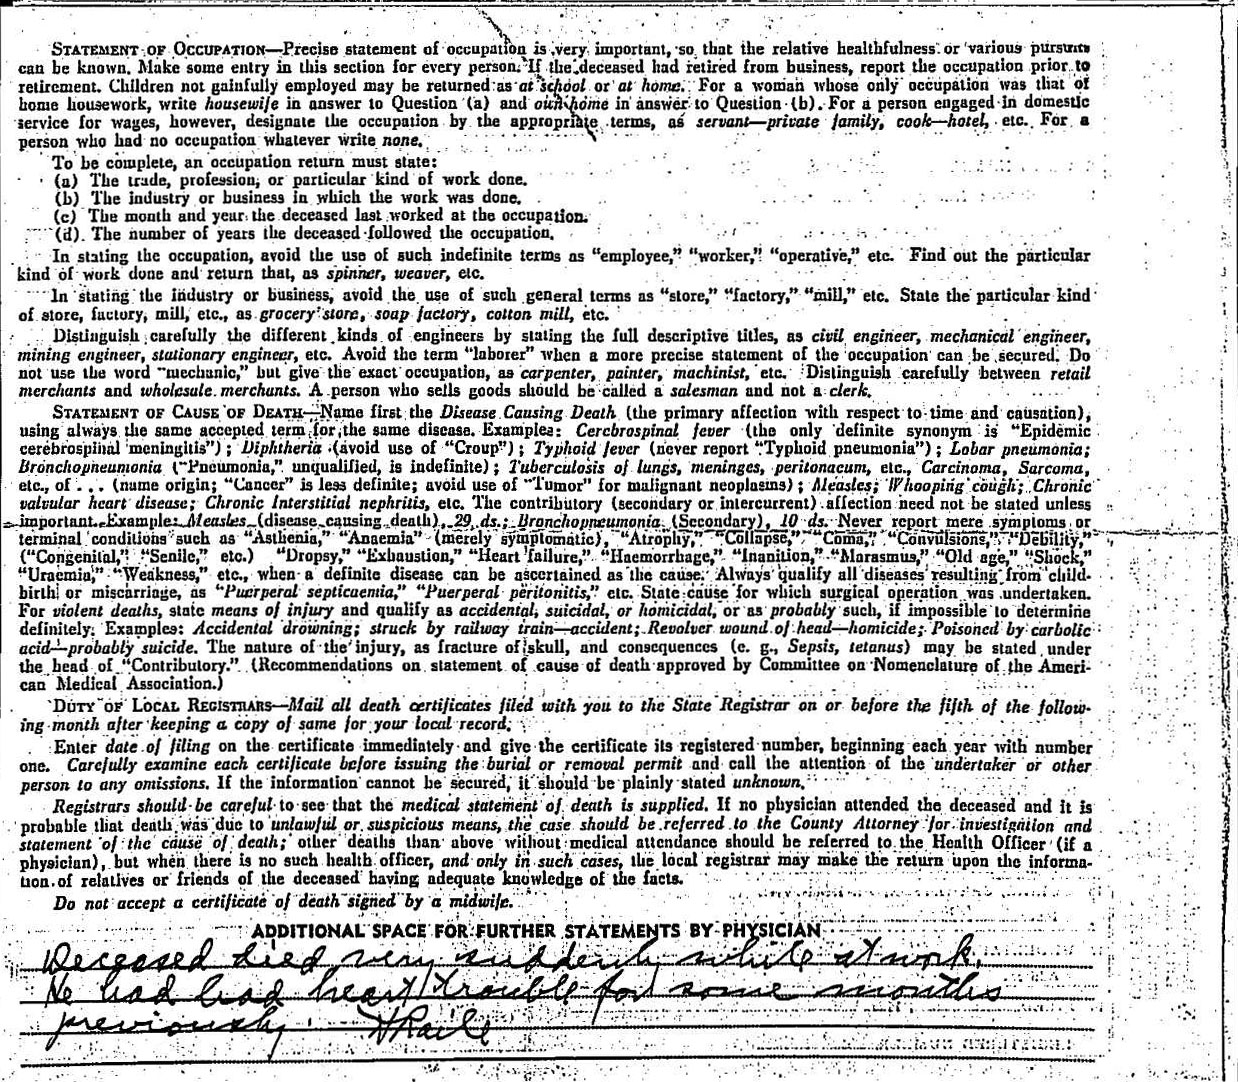 STATEMENT OF OCCUPATION—Precise statement of occupation is very important, so that the relative healthfulness or various pursuits
can be known. Make some entry in this section for every person. If the deceased had retired from business, report the occupation prior to
retirement. Children not gainfully employed may be returned as at school or at home. For a woman whose only occupation was that of
home housework, write housewife in answer to Question (a) and own home in answer to Question (b). For a person engaged in domestic
service for wages, however, designate the occupation by the appropriate terms, as servant—private family, cook—hotel, etc. For a
person who had no occupation whatever write none.
To be complete, an occupation return must state:
(a) The trade, profession, or particular kind of work done.
(b) The industry or business in which the work was done.
(c) The month and year the deceased last worked at the occupation.
(d). The number of years the deceased followed the occupation.
In stating the occupation, avoid the use of such indefinite terms as "employee," "worker," "operative," etc. Find out the particular
kind of work done and return that, as spinner, weaver, etc.
In stating the industry or business, avoid the use of such general terms as "store," "factory," "mill," etc. State the particular kind
of store, factory, mill, etc., as grocery store, soap factory, cotton mill, etc.
Distinguish carefully the different kinds of engineers by stating the full descriptive titles, as civil engineer, mechanical engineer,
mining engineer, stationary engineer, etc. Avoid the term "laborer" when a more precise statement of the occupation can be secured. Do
not use the word "mechanic," but give the exact occupation, as carpenter, painter, machinist, etc. Distinguish carefully between retail
merchants and wholesale merchants. A person who sells goods should be called a salesman and not a clerk.
STATEMENT OF CAUSE OF DEATH—Name first the Disease Causing Death (the primary affection with respect to time and causation),
using always the same accepted term for the same disease. Examples: Cercbrospinal fever (the only definite synonym is "Epidemic
cerebrospinal meningitis"); Diphtheria (avoid use of "Croup"); Typhoid fever (never report "Typhoid pneumonia"); Lobar pneumonia;
Bronchopneumonia ("Pneumonia," unqualified, is indefinite); Tuberculosis of lungs, meninges, peritonaeum, etc., Carcinoma, Sarcoma,
etc., of . . . (name origin; "Cancer" is less definite; avoid use of "Tumor" for malignant neoplasms); Measles; Whooping cough; Chronic
valvular heart disease; Chronic Interstitial nephritis, etc. The contributory (secondary or intercurrent) affection need not be stated unless
important. Example: Measles (disease causing death), 29 ds.; Bronchopneumonia (Secondary), 10 ds. Never report mere symptoms or
terminal conditions such as "Asthenia," "Anaemia" (merely symptomatic), "Atrophy," "Collapse," "Coma," "Convulsions," "Debility,"
("Congenital," "Senile," etc.) "Dropsy," "Exhaustion," "Heart failure," "Haemorrhage," "Inanition," "Marasmus," "Old age," "Shock,"
"Uraemia," "Weakness," etc., when a definite disease can be ascertained as the cause. Always qualify all diseases resulting from child-
birth or miscarriage, as "Puerperal septicaemia," "Puerperal peritonitis," etc. State cause for which surgical operation was undertaken.
For violent deaths, state means of injury and qualify as accidental, suicidal, or homicidal, or as probably such, if impossible to determine
definitely. Examples: Accidental drowning; struck by railway train—accident; Revolver wound of head—homicide; Poisoned by carbolic
acid—probably suicide. The nature of the injury, as fracture of skull, and consequences (e. g., Sepsis, tetanus) may be stated under
the head of "Contributory." (Recommendations on statement of cause of death approved by Committee on Nomenclature of the Ameri-
can Medical Association.)
DUTY OF LOCAL REGISTRARS—Mail all death certificates filed with you to the State Registrar on or before the fifth of the follow-
ing month after keeping a copy of same for your local record.
Enter date of filing on the certificate immediately and give the certificate its registered number, beginning each year with number
one. Carefully examine each certificate before issuing the burial or removal permit and call the attention of the undertaker or other
person to any omissions. If the information cannot be secured, it should be plainly stated unknown.
Registrars should be careful to see that the medical statement of death is supplied. If no physician attended the deceased and it is
probable that death was due to unlawful or suspicious means, the case should be referred to the County Attorney for investigation and
statement of the cause of death; other deaths than above without medical attendance should be referred to the Health Officer (if a
physician), but when there is no such health officer, and only in such cases, the local registrar may make the return upon the informa-
tion of relatives or friends of the deceased having adequate knowledge of the facts.
Do not accept a certificate of death signed by a midwife.
ADDITIONAL SPACE FOR FURTHER STATEMENTS BY PHYSICIAN
Deceased died very suddenly while at work.
He had had heart trouble for some months
previously.